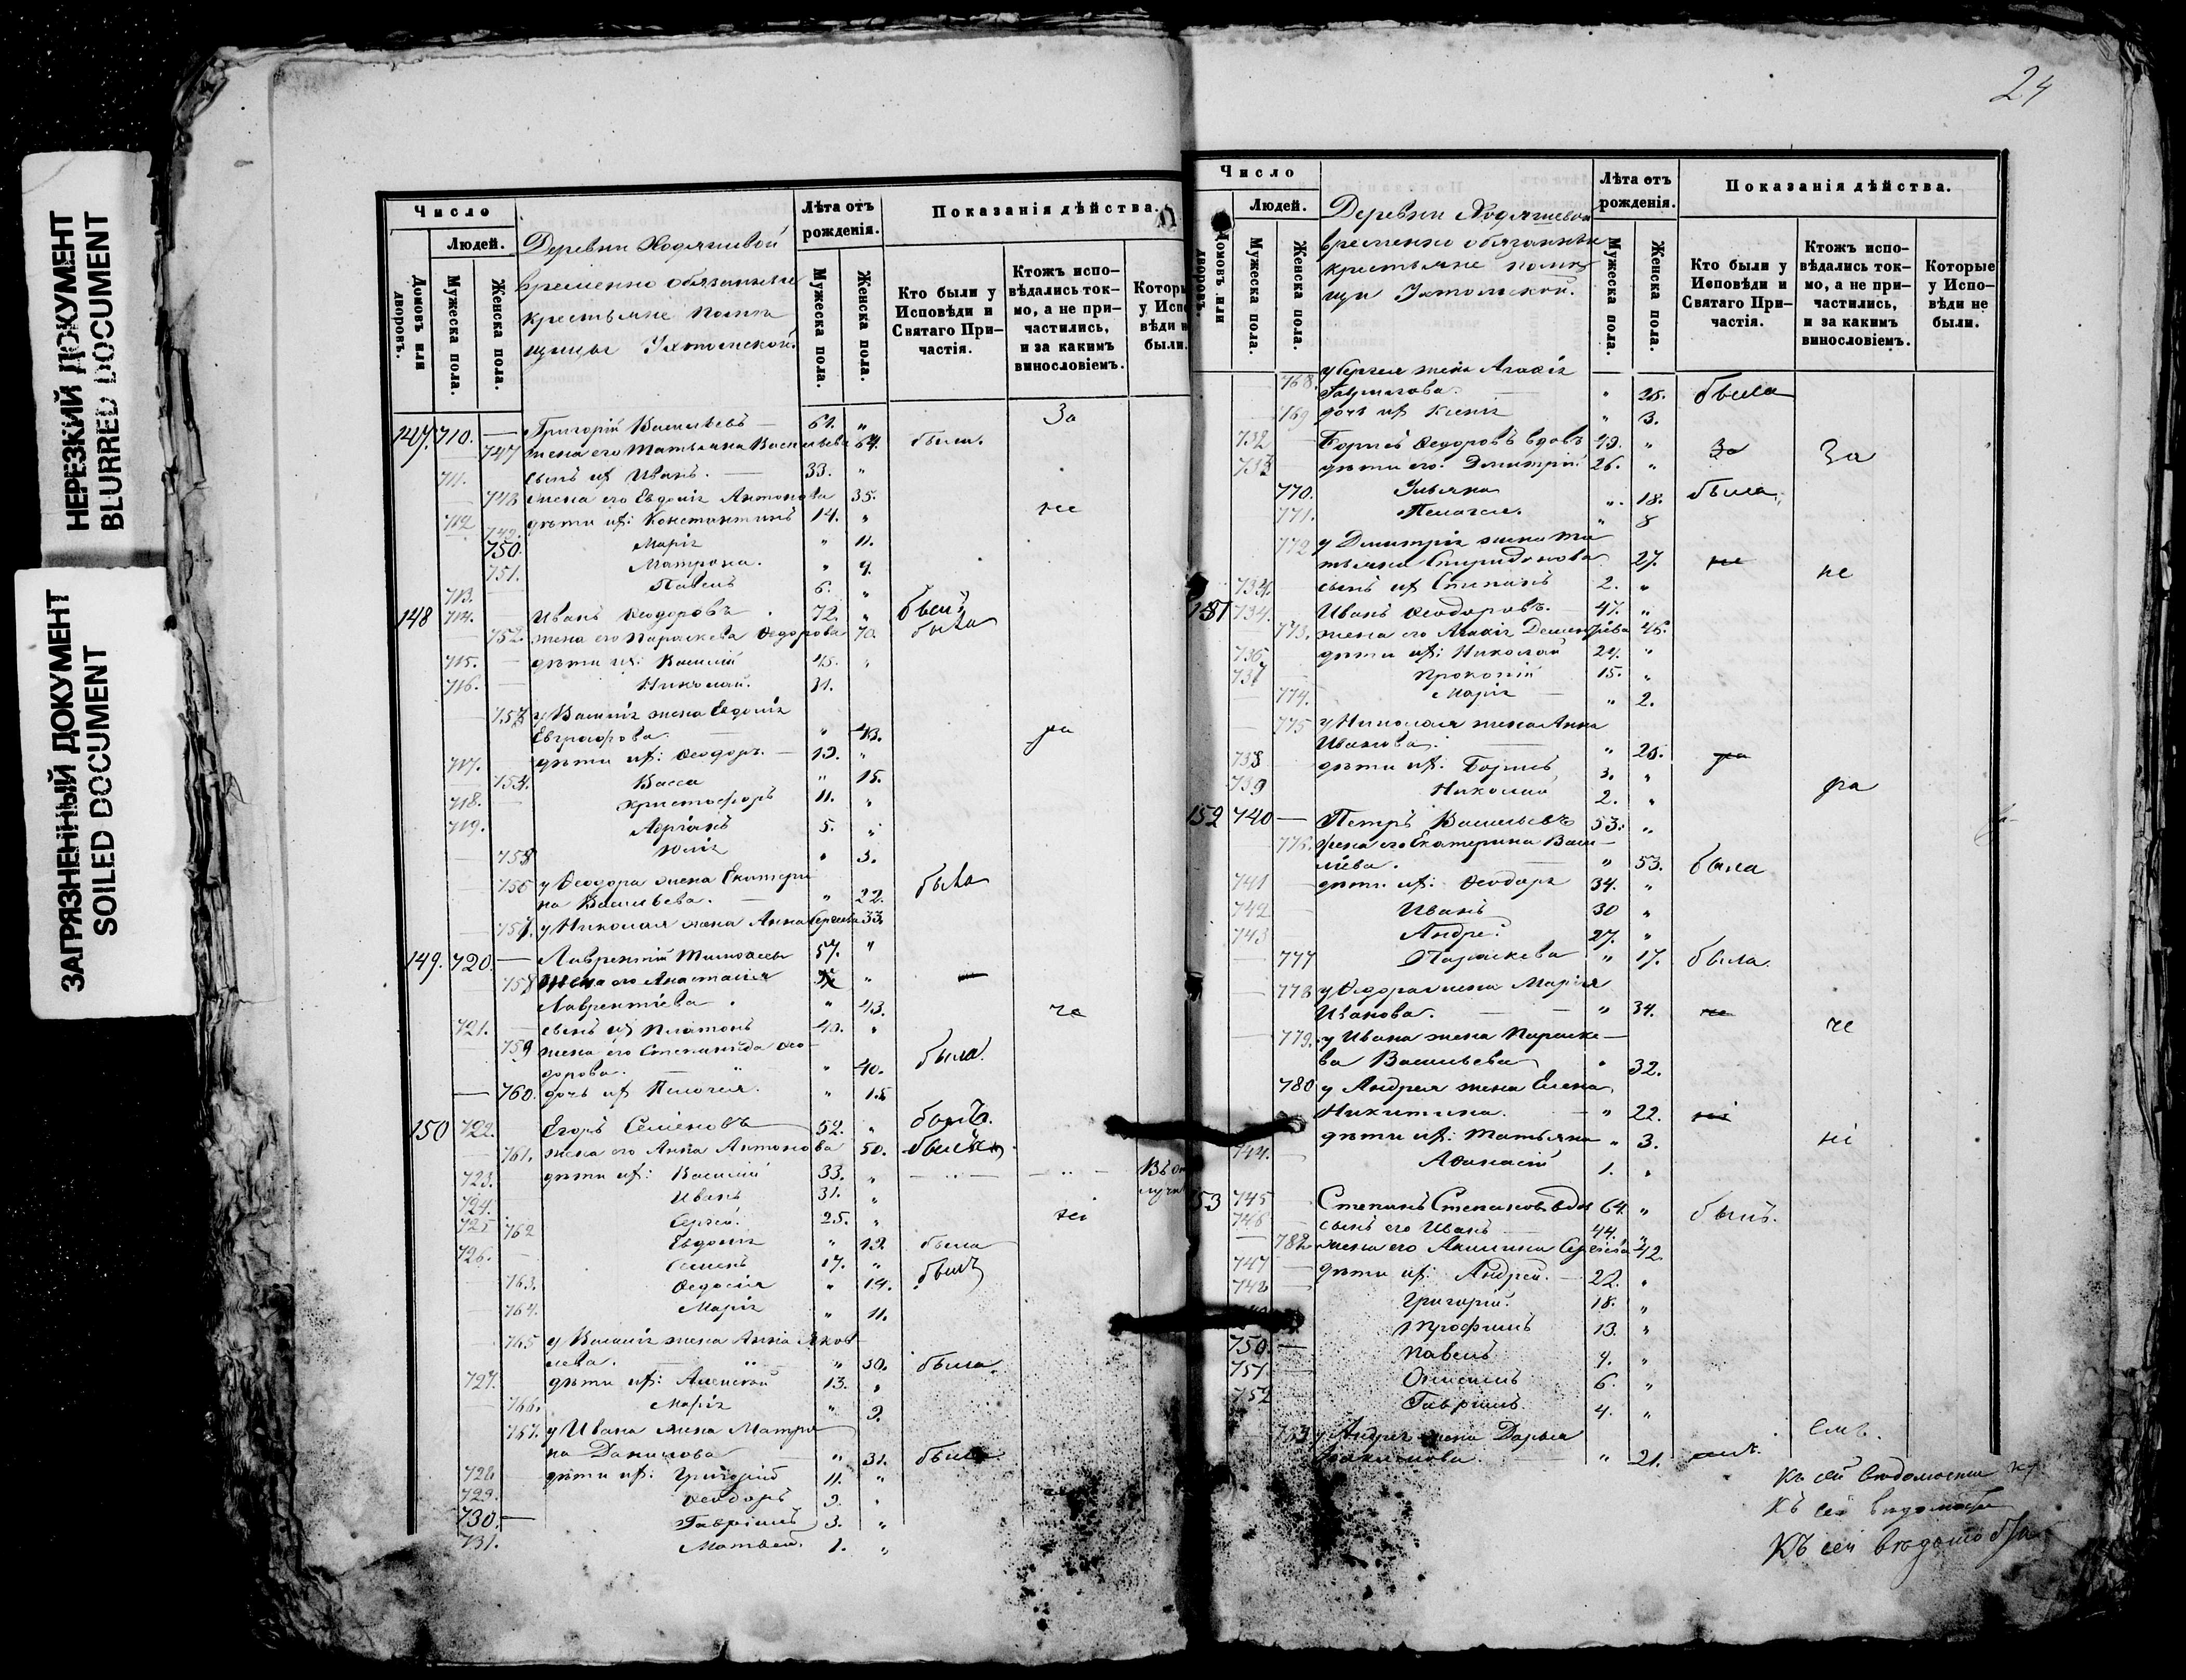 НЕРЕЗКИЙ ДОКУМЕНТ
BLURRED DOCUMENT
ЗАГРЯЗНЕННЫЙ ДОКУМЕНТ
SOILED DOCUMENT
Число
Людей.
Домовъ или дворовъ.
Мужеска пола.
Женска пола.
Деревни
временно обязанные
крестьяне
Ухтомской.
Лѣта отъ рожденія.
Мужеска пола.
Женска пола.
Показанія дѣйства.
Кто были у Исповѣди и Святаго Причастія.
Ктожъ исповѣдались токмо, а не причастились, и за какимъ винословіемъ.
Которы у Испо вѣди н были.
147. 710. — Григорій Васильевъ — 61. " За
747 жена его Татьяна Васильева 64. была
711. сынъ их Иванъ. 33. "
748 жена его Евдокія Антонова 35.
712 дѣти их: Константинъ 14. " не
749.
750. Марія " 11.
751. Матрона. " 9.
713. Павелъ 6. "
148 714. Иванъ Ѳеодоровъ 72. " былъ
752. жена его Параскева Ѳедорова 70. была
715. — дѣти их: Василій 45. "
716. Николай. 31.
753 у Василія жена Евдокія
Евграфова. " 43. ра
717. дѣти их: Ѳеодоръ. — 19. "
754. Васса " 15.
718. Христофоръ 11. "
719. Адріанъ 5. "
755 Юлія " 3.
756 у Ѳеодора жена Екатери
на Васильева. " 22. была
757. у Николая жена Анна Сергеева 33
149. 720. — Лаврентій Тимофеевъ 57. "
758 жена его Анастасія "
Лаврентіева " 43. че
721. — сынъ их Платонъ 40. "
759 жена его Степанида Ѳео
дорова. " 40. была.
— 760. дочь их Пелагея. " 15
150 722. Егоръ Семеновъ 52. "
761. жена его Анна Антонова 50.
723. дѣти их: Василій 33. "
724. Иванъ 31. "
725 762 Сергей. 25. "
Евдокія " 19 была
726. Семенъ 17. "
763. Ѳедосія " 14. былъ
764. Марія " 11.
765 у Василія жена Анна Яков
лева. " 30. была
727. дѣти их: Алексей 13. "
766. Марія " 9.
767. у Ивана жена Матро
на Данилова " 31. была
728 дѣти их: Григорій 11. "
729. Ѳеодоръ 9. "
730. — Гавріилъ 3. "
731. Матвей. 1. "
24
Число
Людей.
Домовъ или дворовъ.
Мужеска пола.
Женска пола.
Деревни
временно обязанные
крестьяне поме
щи Ухтомской.
Лѣта отъ рожденія.
Мужеска пола.
Женска пола.
Показанія дѣйства.
Кто были у Исповѣди и Святаго Причастія.
Ктожъ исповѣдались токмо, а не причастились, и за какимъ винословіемъ.
Которые у Исповѣди не были.
768. у Сергея жена Агафія
" 25. была
769 дочь их Ксенія " 3.
732 Борисъ Ѳедоровъ вдовъ 49. " За За
733 дѣти его: Димитрій 26. "
770. Ульяна " 18. была
771. Пелагея. " 8
772 у Димитрія жена Та
тьяна Спиридонова 27. не не
734. сынъ их Степанъ 2. "
151 734. Иванъ Ѳеодоровъ. 47. "
773. жена его Агафія Дементьева 46.
736 дѣти их: Николай 24. "
737 Прокопій 15. "
774. Марія " 2.
775 у Николая жена Анна
Иванова. " 25. ра
738 дѣти их: Борисъ 3. "
739 Николай 2. " ра
152 740 — Петръ Васильевъ 53. "
776. жена его Екатерина Васи
льева. " 53. была
741 дѣти их: Ѳеодоръ 34. "
742 Иванъ 30 "
743 Андрей 27. "
777 Параскева " 17. была.
778 у Ѳедора жена Марія
Иванова. " 34. не че
779. у Ивана жена Параске—
ва Васильева " 32.
780 у Андрея жена Елена
Никитина. " 22. ні ні
дѣти их: Татьяна " 3.
744. Афанасій 1. "
153 745 Степанъ Степановъ вдов 64. " былъ.
746 сынъ его Иванъ 44. "
782 жена его Акилина Сергеева 42
747 дѣти их: Андрей. 22. "
748 Григорій. 18. "
Трофимъ 13. "
750. — Павелъ 9. "
751. 6. "
752 Гавріилъ 4. "
у Андрея жена Дарья
" 21.
Къ сей вѣдомости
Къ сей
Къ сей